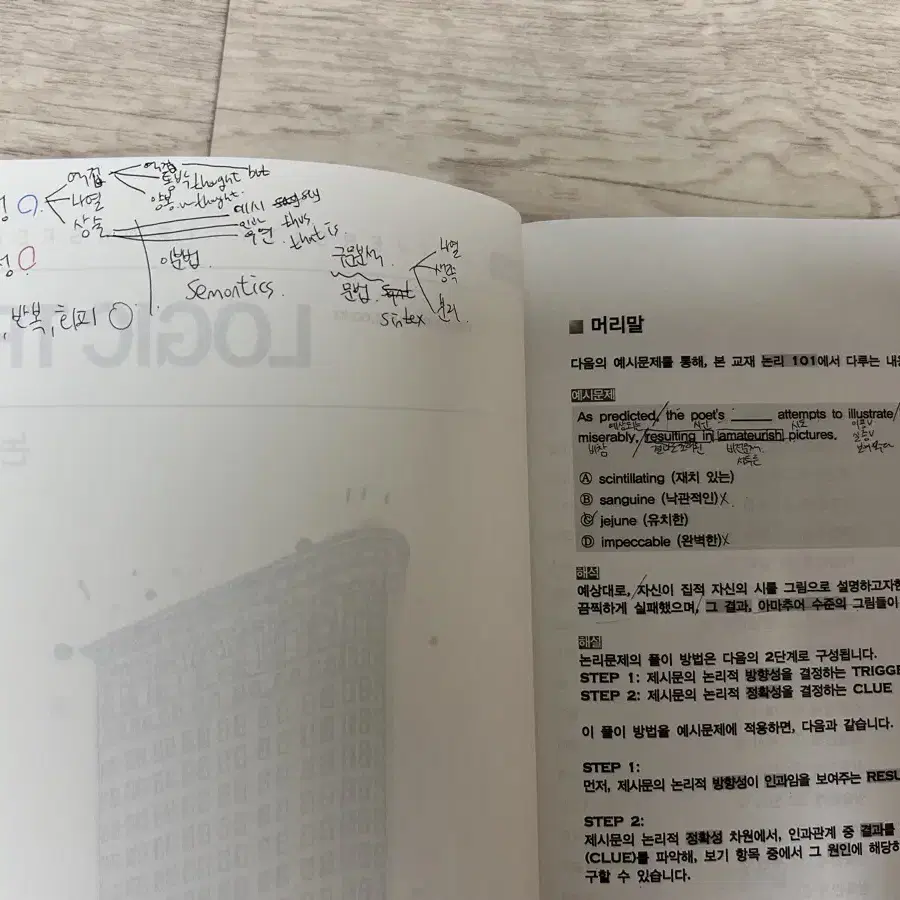 역접
역접
but
나열
토박누 thought
양봉
상술
예시
thus
우연 that is
이분법
Semontics.
구문분석
나열
생략
분리
문법.
sintex
, 반복, 회피 ○
LOGIC TR
논
■ 머리말
다음의 예시문제를 통해, 본 교재 논리 101에서 다루는 내
예시문제
As predicted, the poet's _____ attempts to illustrate
예상되는
시인
시도
miserably, resulting in amateurish pictures.
비참
Ⓐ scintillating (재치 있는)
Ⓑ sanguine (낙관적인)X
Ⓒ jejune (유치한)
Ⓓ impeccable (완벽한)X
해석
예상대로, 자신이 직접 자신의 시를 그림으로 설명하고자한
끔찍하게 실패했으며, 그 결과, 아마추어 수준의 그림들이
해설
논리문제의 풀이 방법은 다음의 2단계로 구성됩니다.
STEP 1: 제시문의 논리적 방향성을 결정하는 TRIGGE
STEP 2: 제시문의 논리적 정확성을 결정하는 CLUE
이 풀이 방법을 예시문제에 적용하면, 다음과 같습니다.
STEP 1:
먼저, 제시문의 논리적 방향성이 인과임을 보여주는 RESU
STEP 2:
제시문의 논리적 정확성 차원에서, 인과관계 중 결과를
(CLUE)를 파악해, 보기 항목 중에서 그 원인에 해당하
구할 수 있습니다.